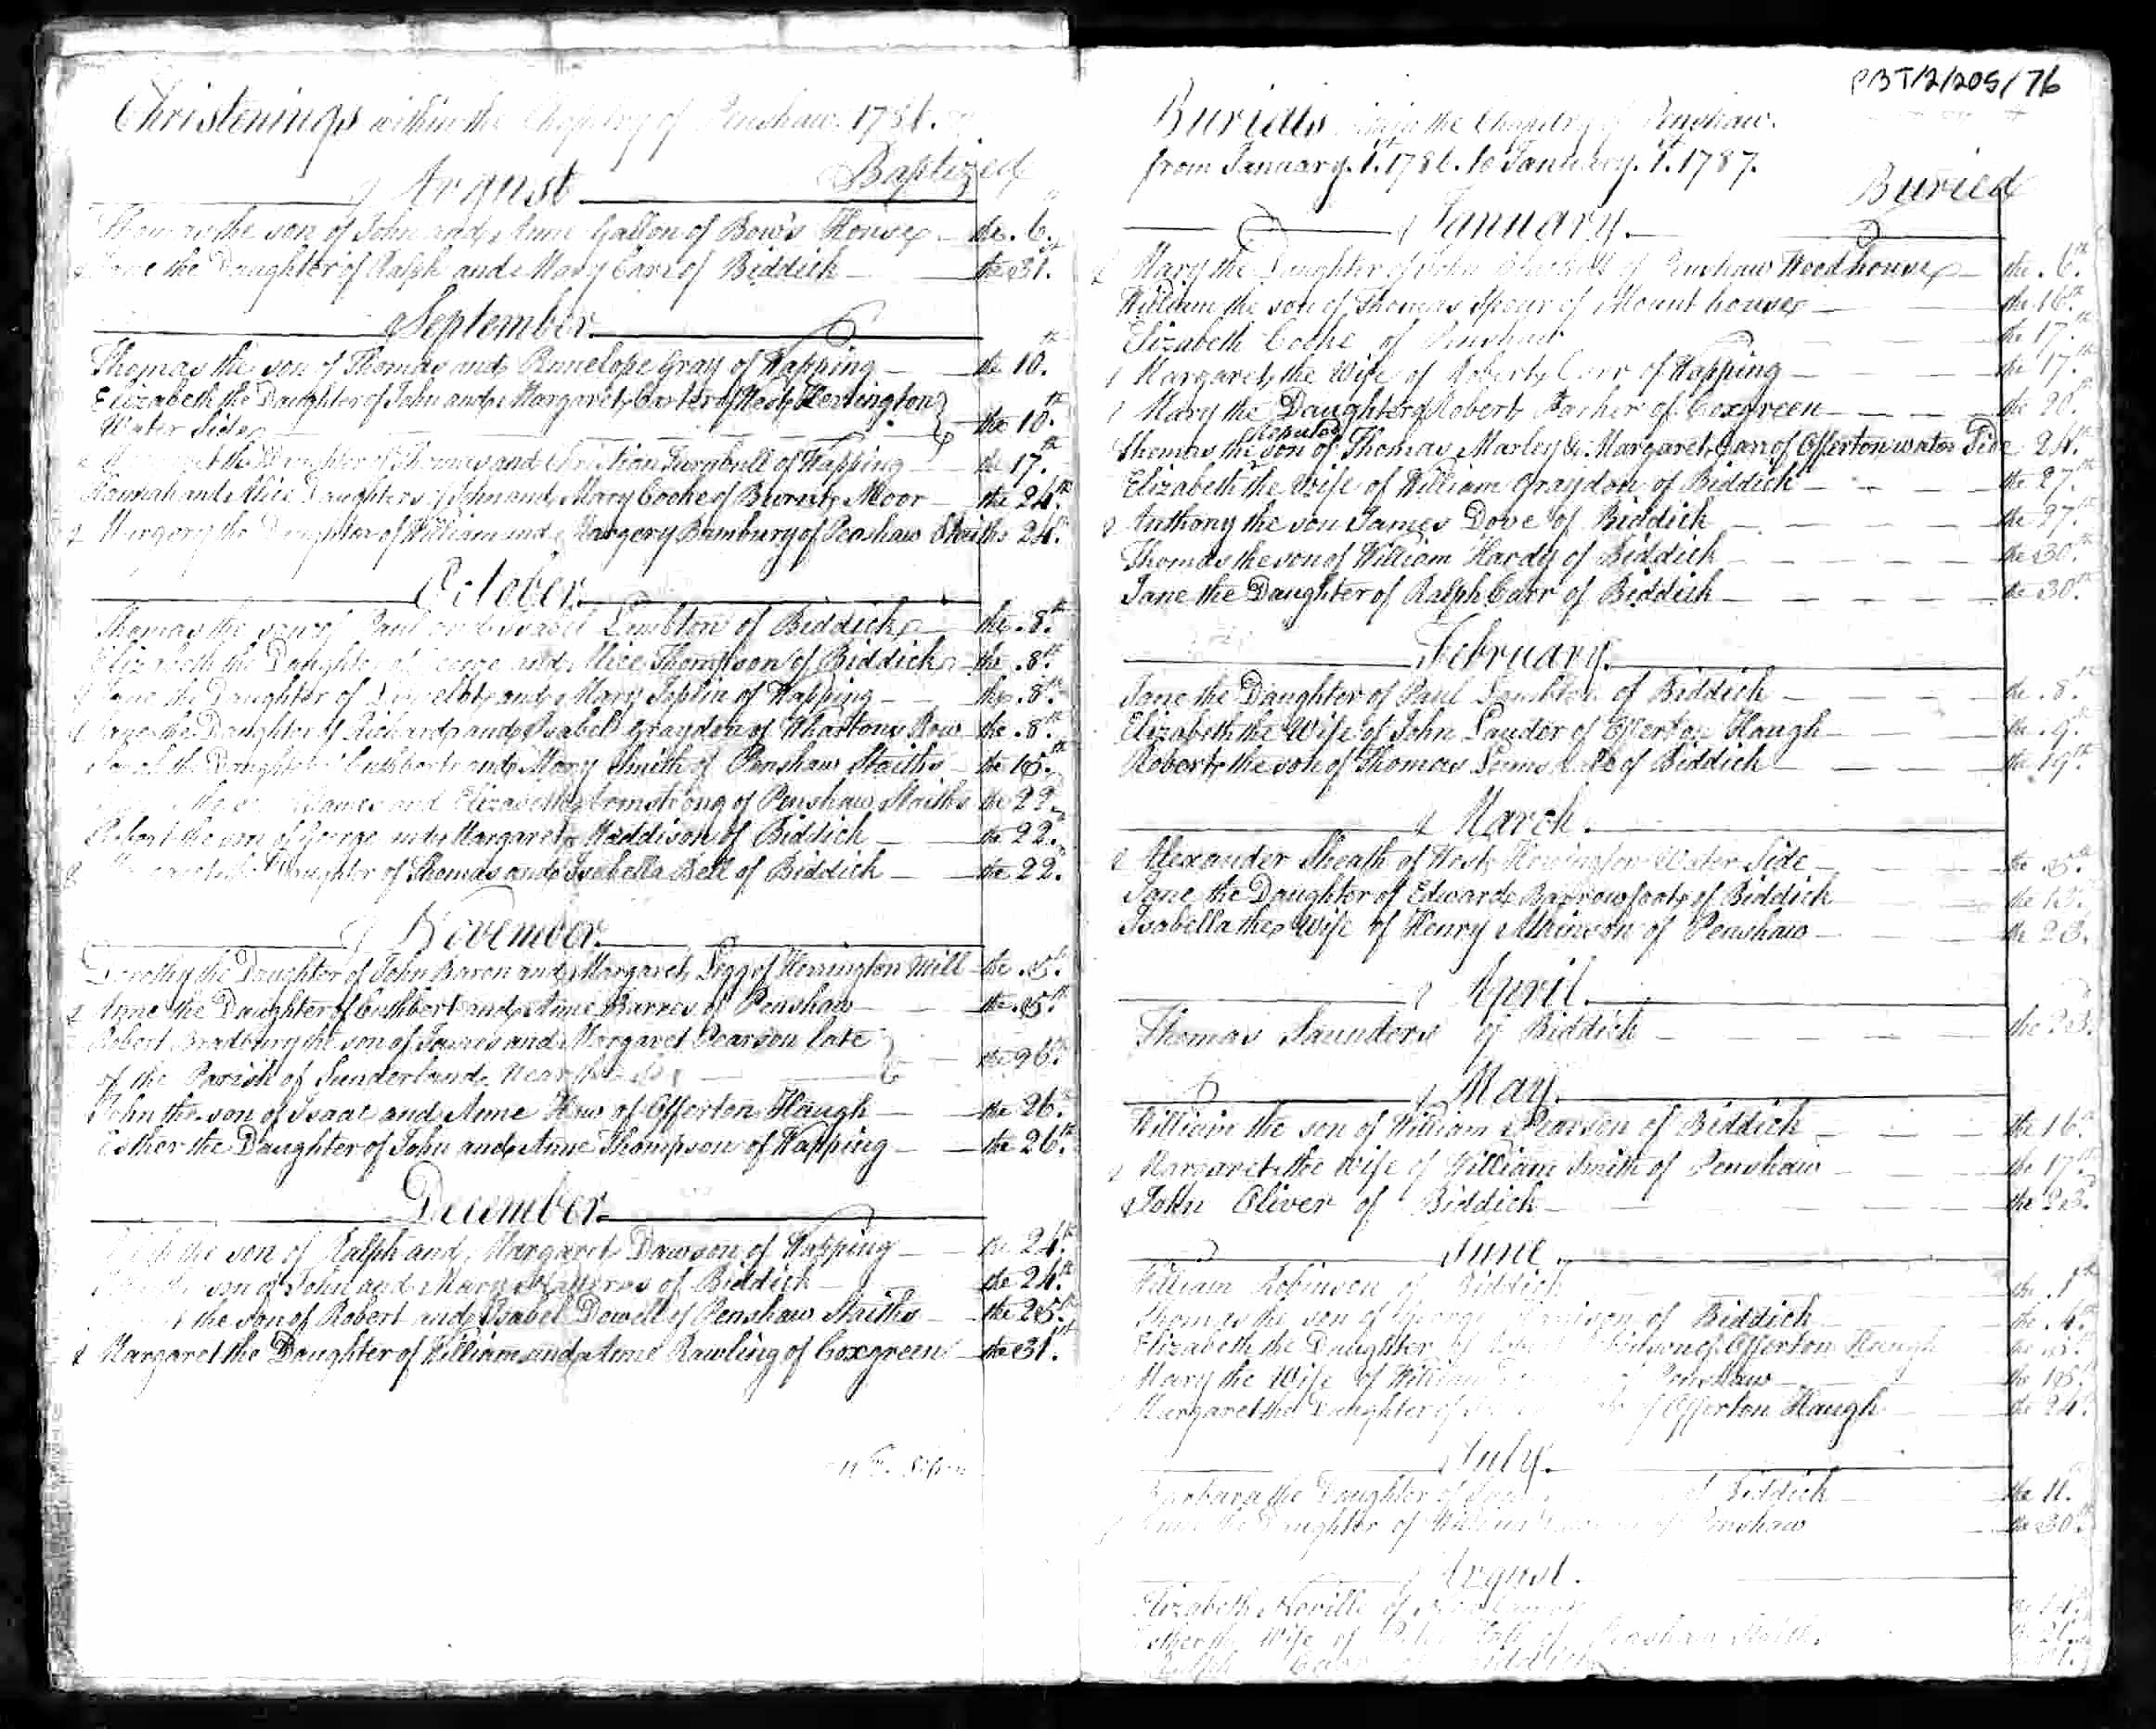 Christenings within the Chapelry of Penshaw. 1786.
Baptized
August
Thomas the son of John and Anne Gallon of Bow's House the 6.
Jane the Daughter of Ralph and Mary Carr of Biddick the 31.st
September.
Thomas the son of Thomas and Pennelope Gray of Wapping the 10.th
Elizabeth the Daughter of John and Margaret Carter of West Herrington
Water Side the 10.th
the Daughter of Thomas and Christian Turnbull of Wapping the 17.th
Hannah and Alice Daughters of John and Mary Cooke of Burnt Moor the 24.th
Margery the Daughter of William and Margery Bambury of Penshaw Staiths 24.th
October.
Thomas the son of Paul and Isabel Lambton of Biddick the 8.th
Elizabeth the Daughter of George and Alice Thompson of Biddick the 8.th
Jane the Daughter of and Mary Joplin of Wapping the 8.th
Jane the Daughter of Richard and Isabel Graydon of Whartons Row the 8.th
Sarah the Daughter Cuthbert and Mary Smith of Penshaw Staiths the 15.th
James and Elizabeth Armstrong of Penshaw Staiths the 22.
Robert the son of George and Margaret Maddison of Biddick the 22.
Daughter of Thomas and Isabella Bell of Biddick the 22.
November.
Dorothy the Daughter of John Baron and Margaret Legg of Herrington Mill the 5.th
Anne the Daughter of Cuthbert and Anne Barres of Penshaw the 5.th
Robert Bradbury the son of James and Margaret Pearson late
of the Parish of Sunderland Near the Sea the 26.th
John the son of Isaac and Anne Haw of Offerton Haugh the 26.th
Esther the Daughter of John and Anne Thompson of Wapping the 26.th
December.
the son of Ralph and Margaret Dawson of Wapping the 24.th
son of John and Mary of Biddick the 24.th
the son of Robert and Isabel Dowell of Penshaw Staiths the 25.th
Margaret the Daughter of William and Anne Rawling of Coxgreen the 31.st
PBT/2/205/76
Burials within the Chapelry of Penshaw.
from January. 1.st 1786. to January. 1.st 1787.
Buried
January.
Mary the Daughter of John of Penshaw Woodhouse the 6.th
William the son of Thomas Spour of Mount house the 16.th
Elizabeth Cooke of Penshaw the 17.th
Margaret the Wife of Robert Corr of Wapping the 17.th
Mary the Daughter of Robert Farher of Coxgreen the 20.th
Reputed
Thomas the son of Thomas Marley & Margaret Carr of Offerton water Side 24.th
Elizabeth the Wife of William Graydon of Biddick the 27.th
Anthony the son James Dove of Biddick the 27.th
Thomas the son of William Hardy of Biddick the 30.th
Jane the Daughter of Ralph Carr of Biddick the 30.th
February.
Jane the Daughter of Paul Lambton of Biddick the 8.th
Elizabeth the Wife of John Lauder of Offerton Haugh the 9.th
Robert the son of Thomas of Biddick the 19.th
March.
Alexander Sheath of West Herrington Water Side the 5.th
Jane the Daughter of Edward Barrowfoot of Biddick the 13.
Isabella the Wife of Henry Atkinson of Penshaw the 23.
April.
Thomas Saunders of Biddick the 23.
May.
William the son of William Pearson of Biddick the 16.th
Margaret the Wife of William Smith of Penshaw the 17.th
John Oliver of Biddick the 23.
June.
William Robinson of Biddick the 1.st
Thomas the son of George of Biddick the 4.th
Elizabeth the Daughter of of Offerton Haugh the
Mary the Wife of William Penshaw the 15.
Margaret the Daughter of of Offerton Haugh the 24.
July.
Barbara the Daughter of of Biddick the 11.
the Daughter of William of Penshaw the 30.th
August.
Elizabeth Neville of
Esther the Wife of Hall of Penshaw Staiths
Ralph Carr of Biddick